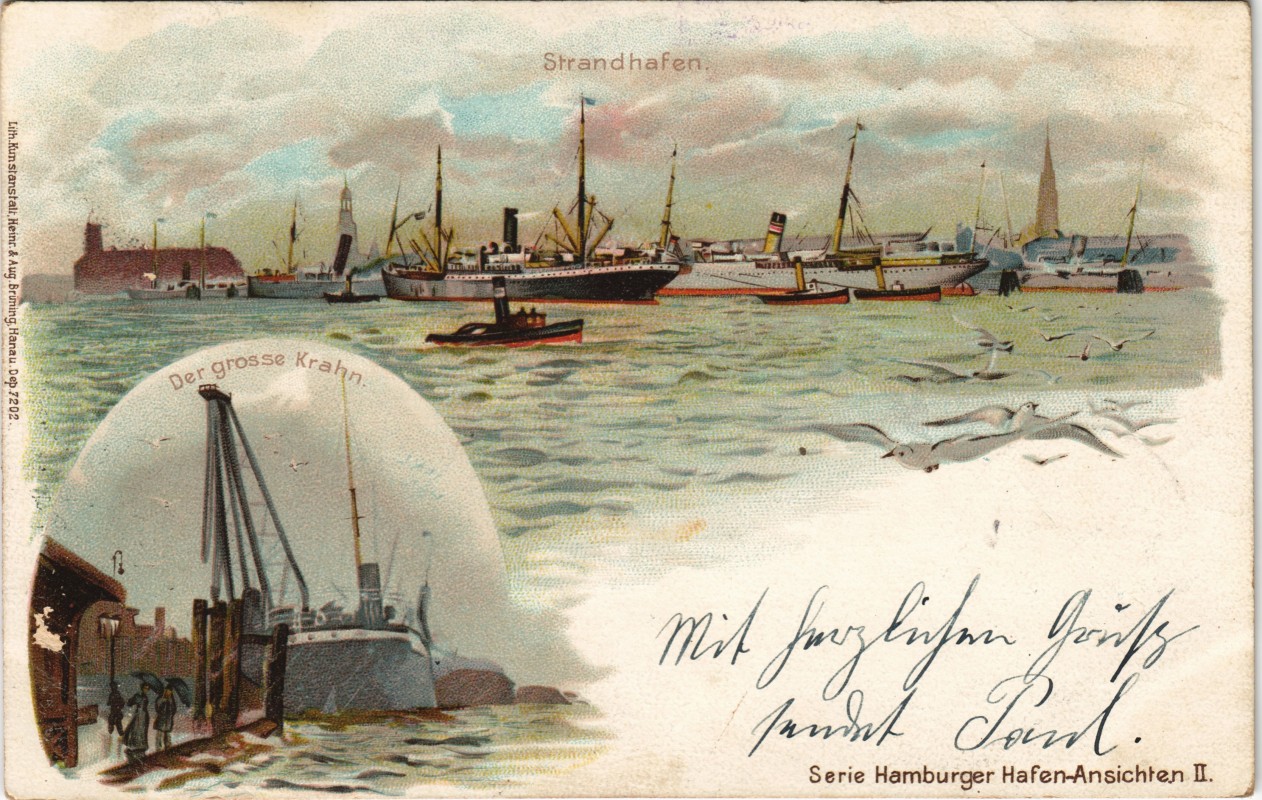 Strandhafen.
Der grosse Krahn.
Lith. Kunstanstalt, Heinr. & Aug. Brüning, Hanau. Dep 7202.
Mit herzlichem Gruß
sendet Paul.
Serie Hamburger Hafen-Ansichten II.